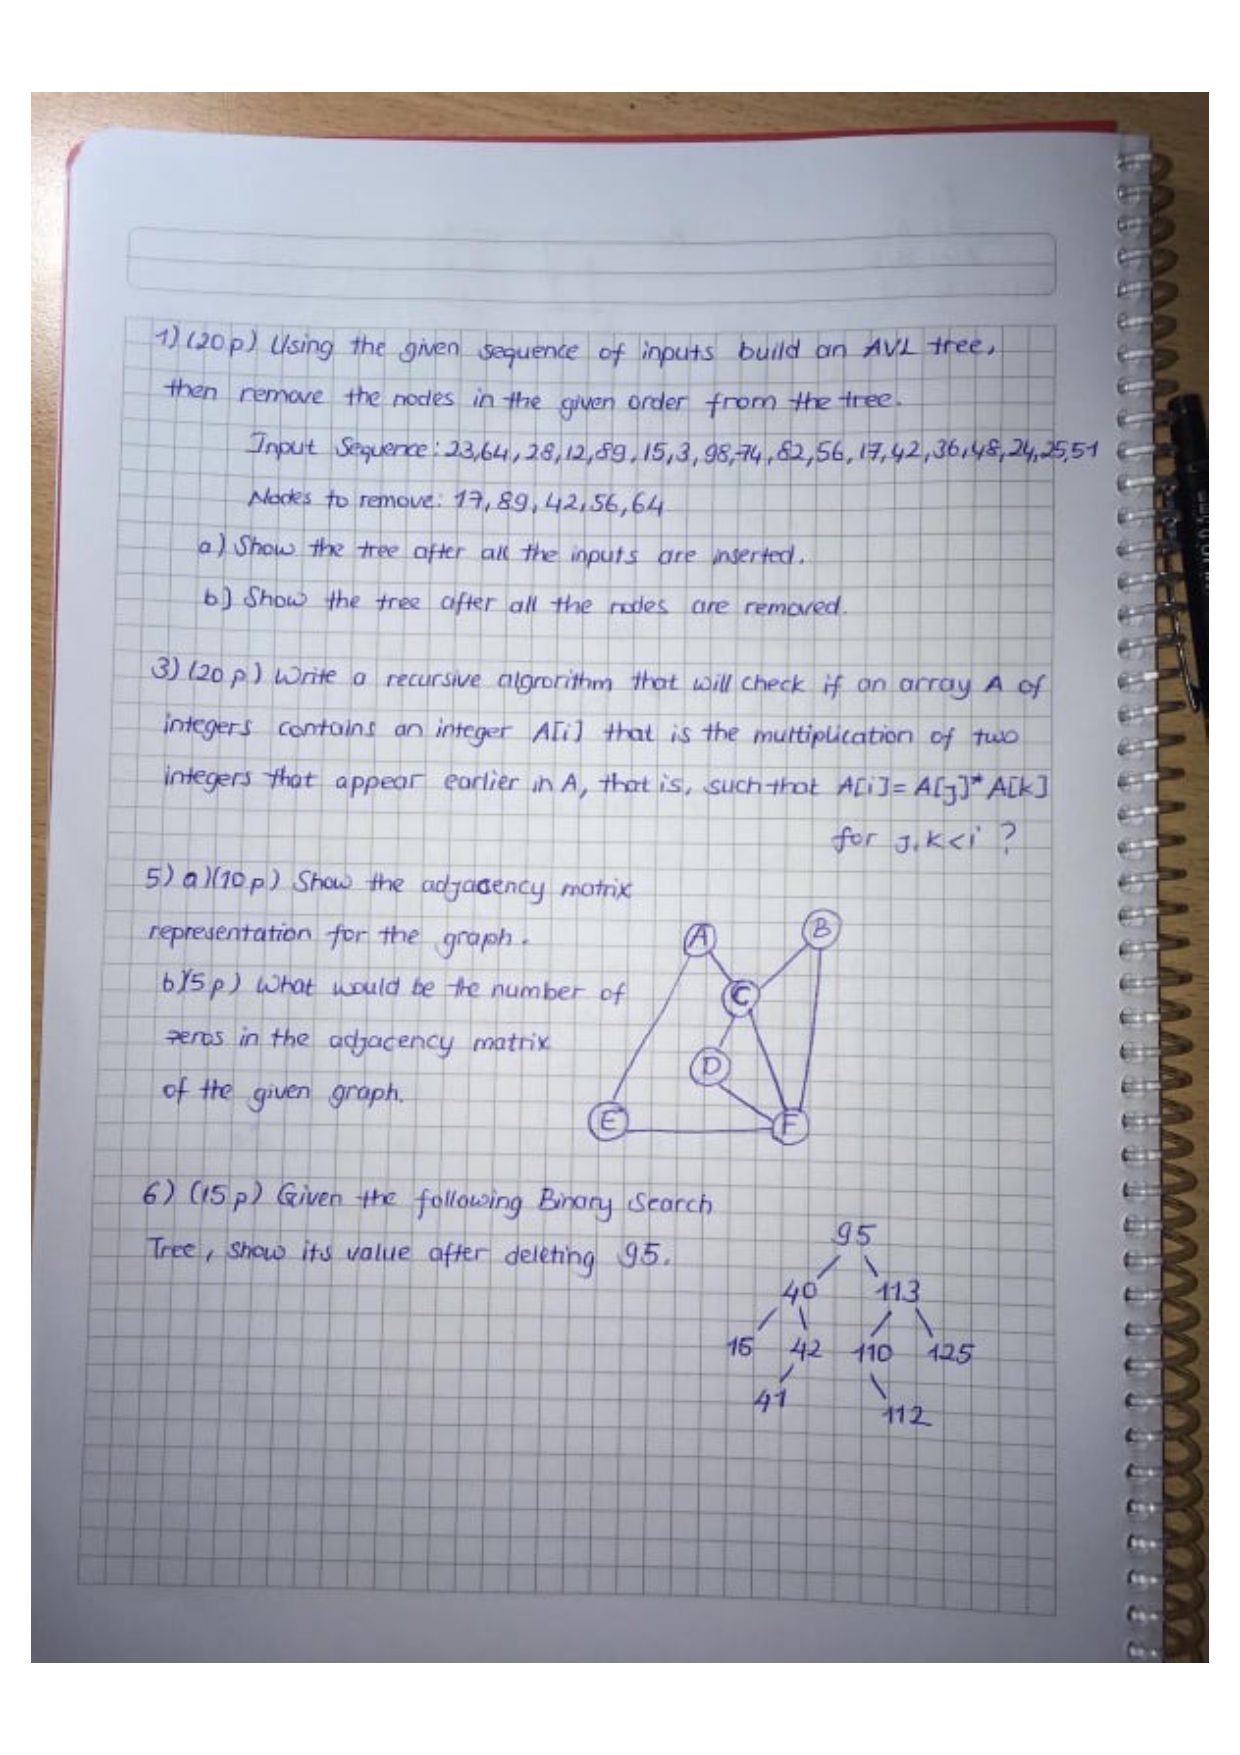 1) (20p) Using the given sequence of inputs build an AVL tree,
then remove the nodes in the given order from the tree.
Input Sequence: 23,64,28,12,89,15,3,98,74,82,56,17,42,36,48,24,25,51
Nodes to remove: 17,89,42,56,64
a) Show the tree after all the inputs are inserted.
b) Show the tree after all the nodes are removed.
3) (20p) Write a recursive algrorithm that will check if an array A of
integers contains an integer A[i] that is the multiplication of two
integers that appear earlier in A, that is, such that A[i]= A[j]* A[k]
for j,k<i ?
5) a)(10p) Show the adjacency matrix
representation for the graph.
b)(5p) What would be the number of
zeros in the adjacency matrix
of the given graph.
A B
C
D
E F
6) (15p) Given the following Binary Search
Tree, show its value after deleting 95.
95
40 113
15 42 110 125
41 112